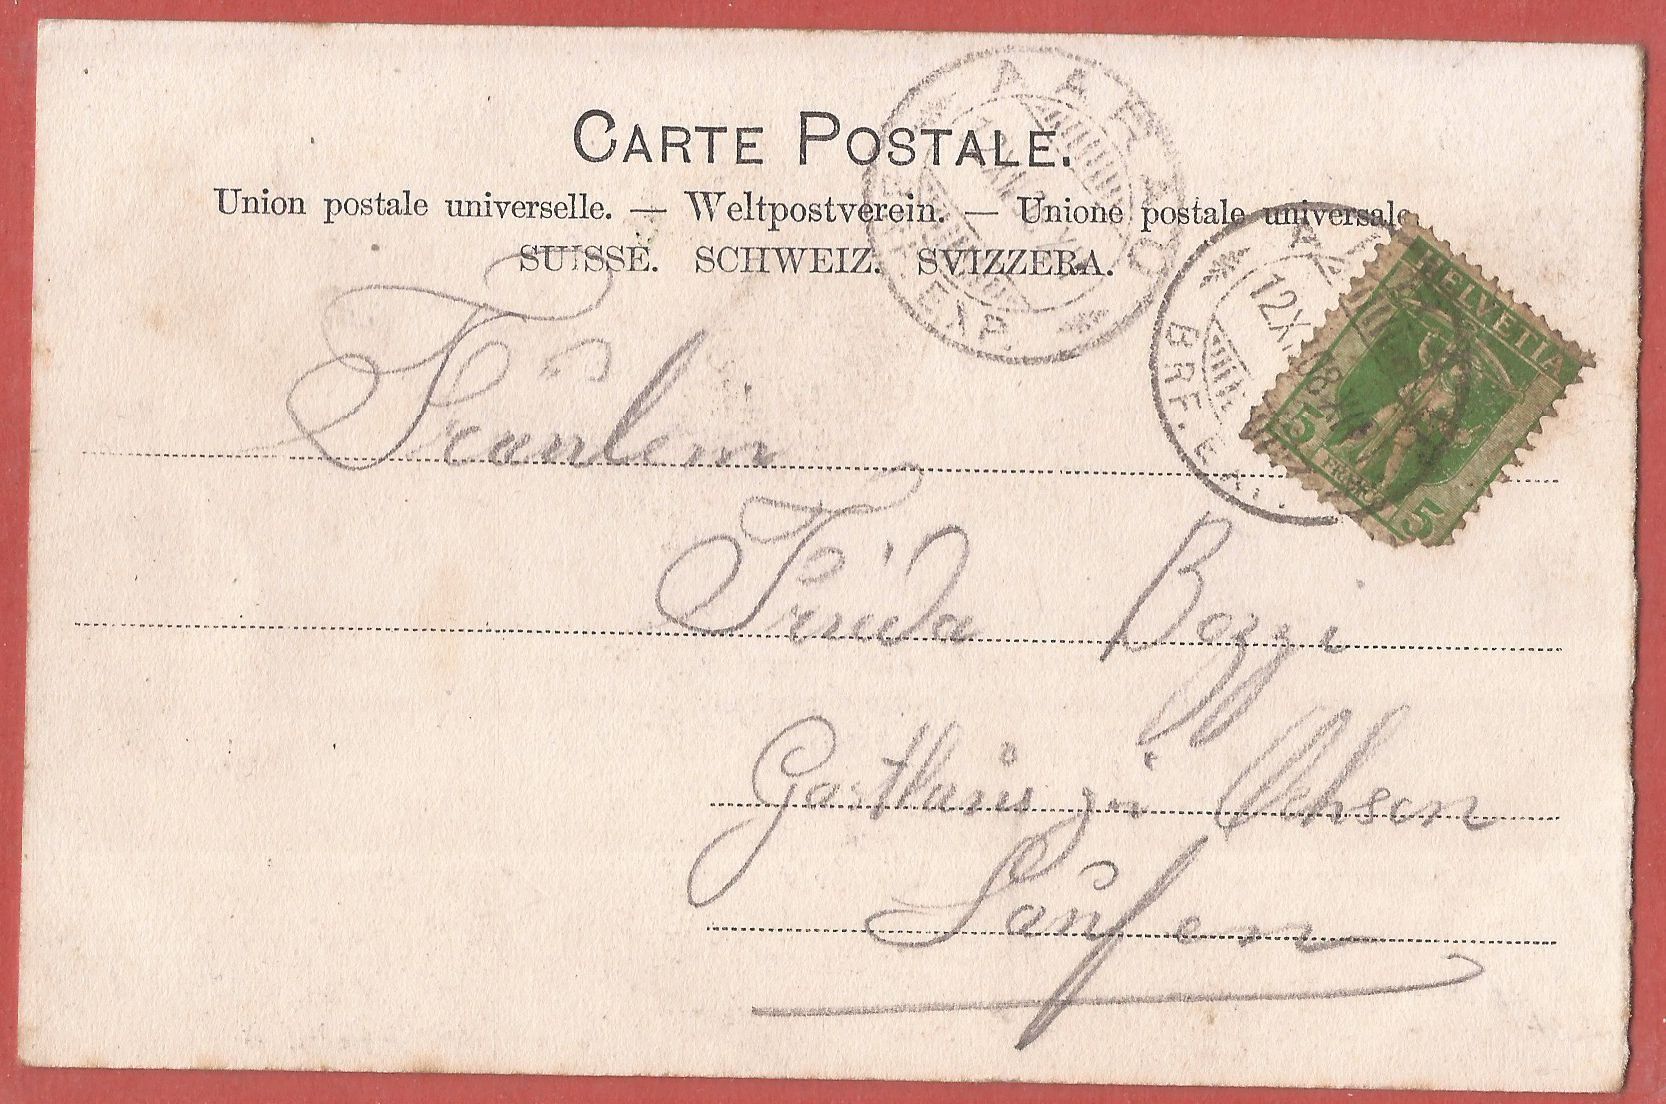 CARTE POSTALE.
Union postale universelle. — Weltpostverein. — Unione postale universale
SUISSE. SCHWEIZ. SVIZZERA.
AARAU
BRF. EXP.
12 XI 08 XII
BRF. EXP.
HELVETIA
5 FRANCO 5
Fräulein
Frieda Bozzi
Gasthaus zu Ochsen
Laufen